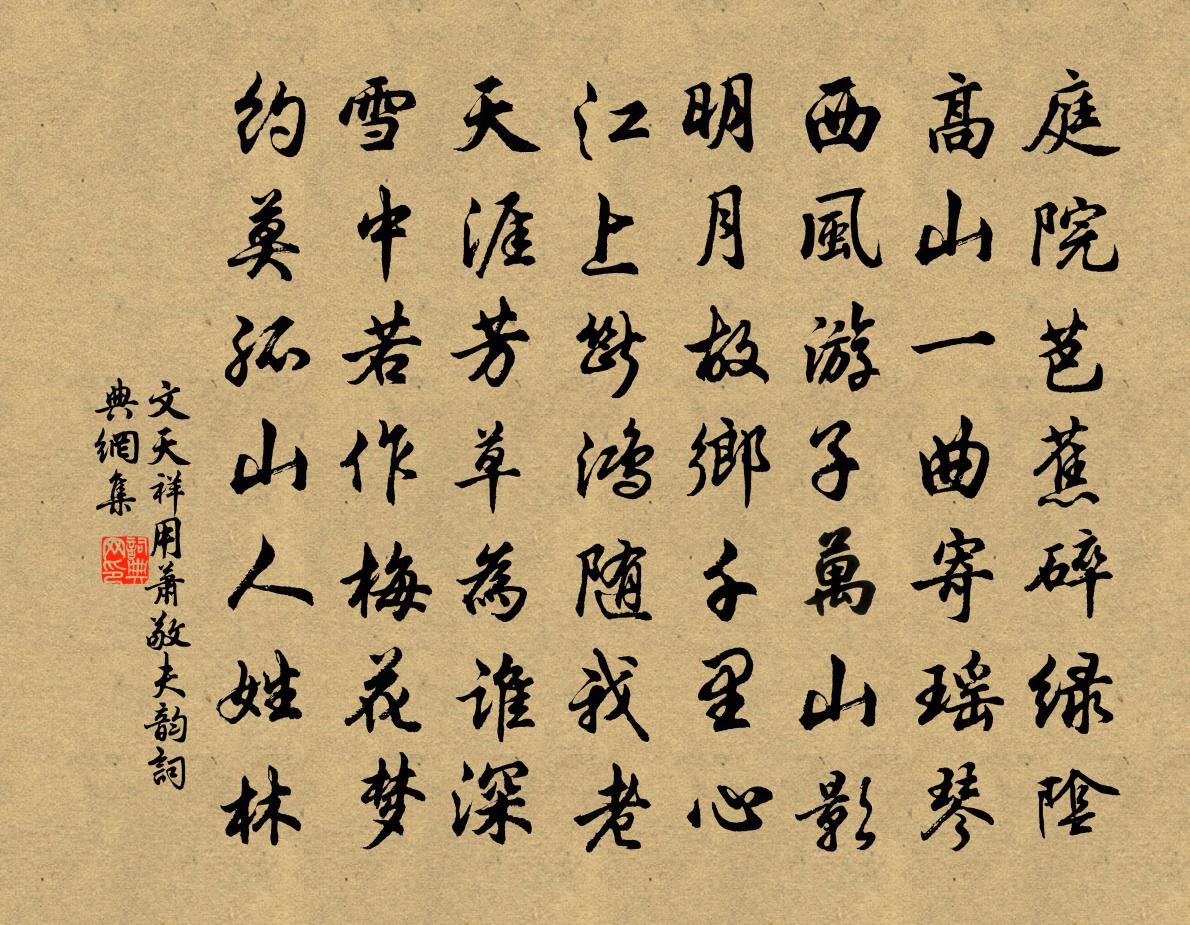 庭院芭蕉碎绿陰
高山一曲寄瑶琴
西風游子萬山影
明月故鄉千里心
江上斷鴻随我老
天涯芳草為谁深
雪中若作梅花梦
约莫孤山人姓林
文天祥用萧敬夫韵詞
典網集
詞典
网印